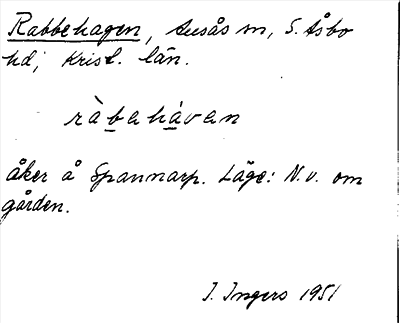 Rabbehagen, Ausås sn, S. Åsbo
hd; Krist. län.
ràbahávan
åker å Spannarp. Läge: N.v. om
gården.
I. Ingers 1951